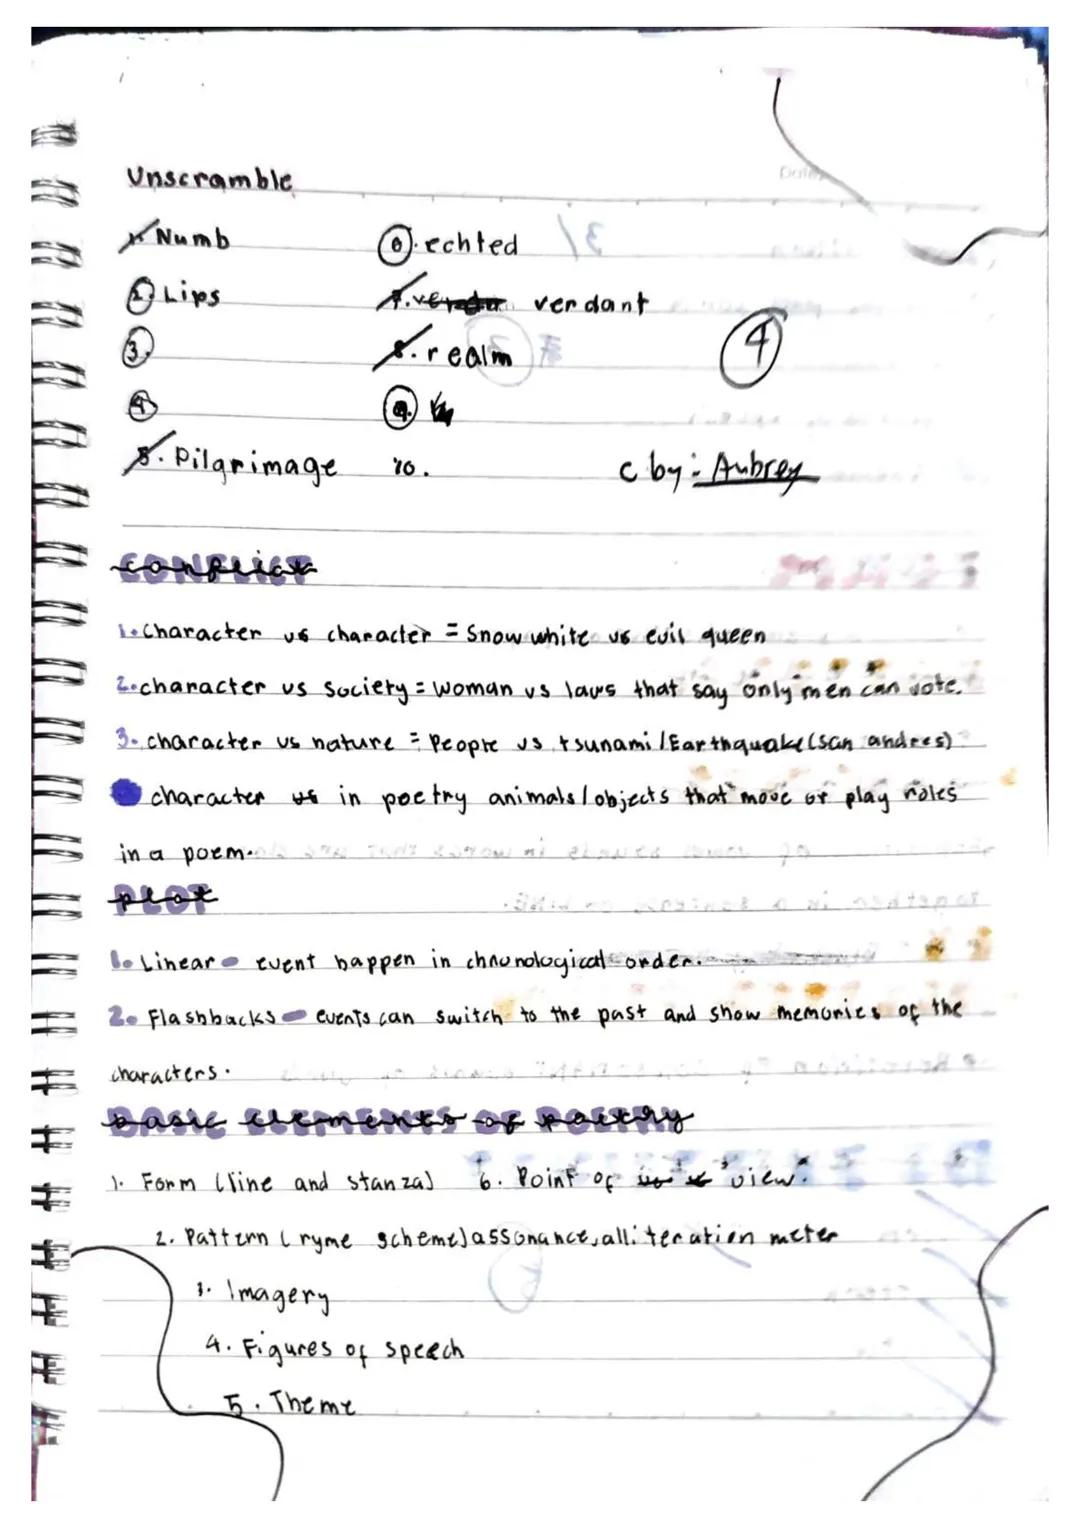 Unscramble
1. Numb
2. Lips
3.
4.
5. Pilgrimage
6. echted
7. verdant
8. realm
9.
10.
4
c by: Aubrey
conflict
1. Character vs character = Snow white vs evil queen
2. character vs society = woman vs laws that say only men can vote.
3. character vs nature = People vs tsunami/Earthquake (san andres)
character in poetry animals/objects that move or play roles
in a poem.
plot
1. Linear - event happen in chronological order.
2. Flashbacks - events can switch to the past and show memories of the
characters.
basic elements of poetry
1. Form (line and stanza) 6. Point of view.
2. Pattern (ryme scheme) assonance, alliteration meter
3. Imagery
4. Figures of speech
5. Theme